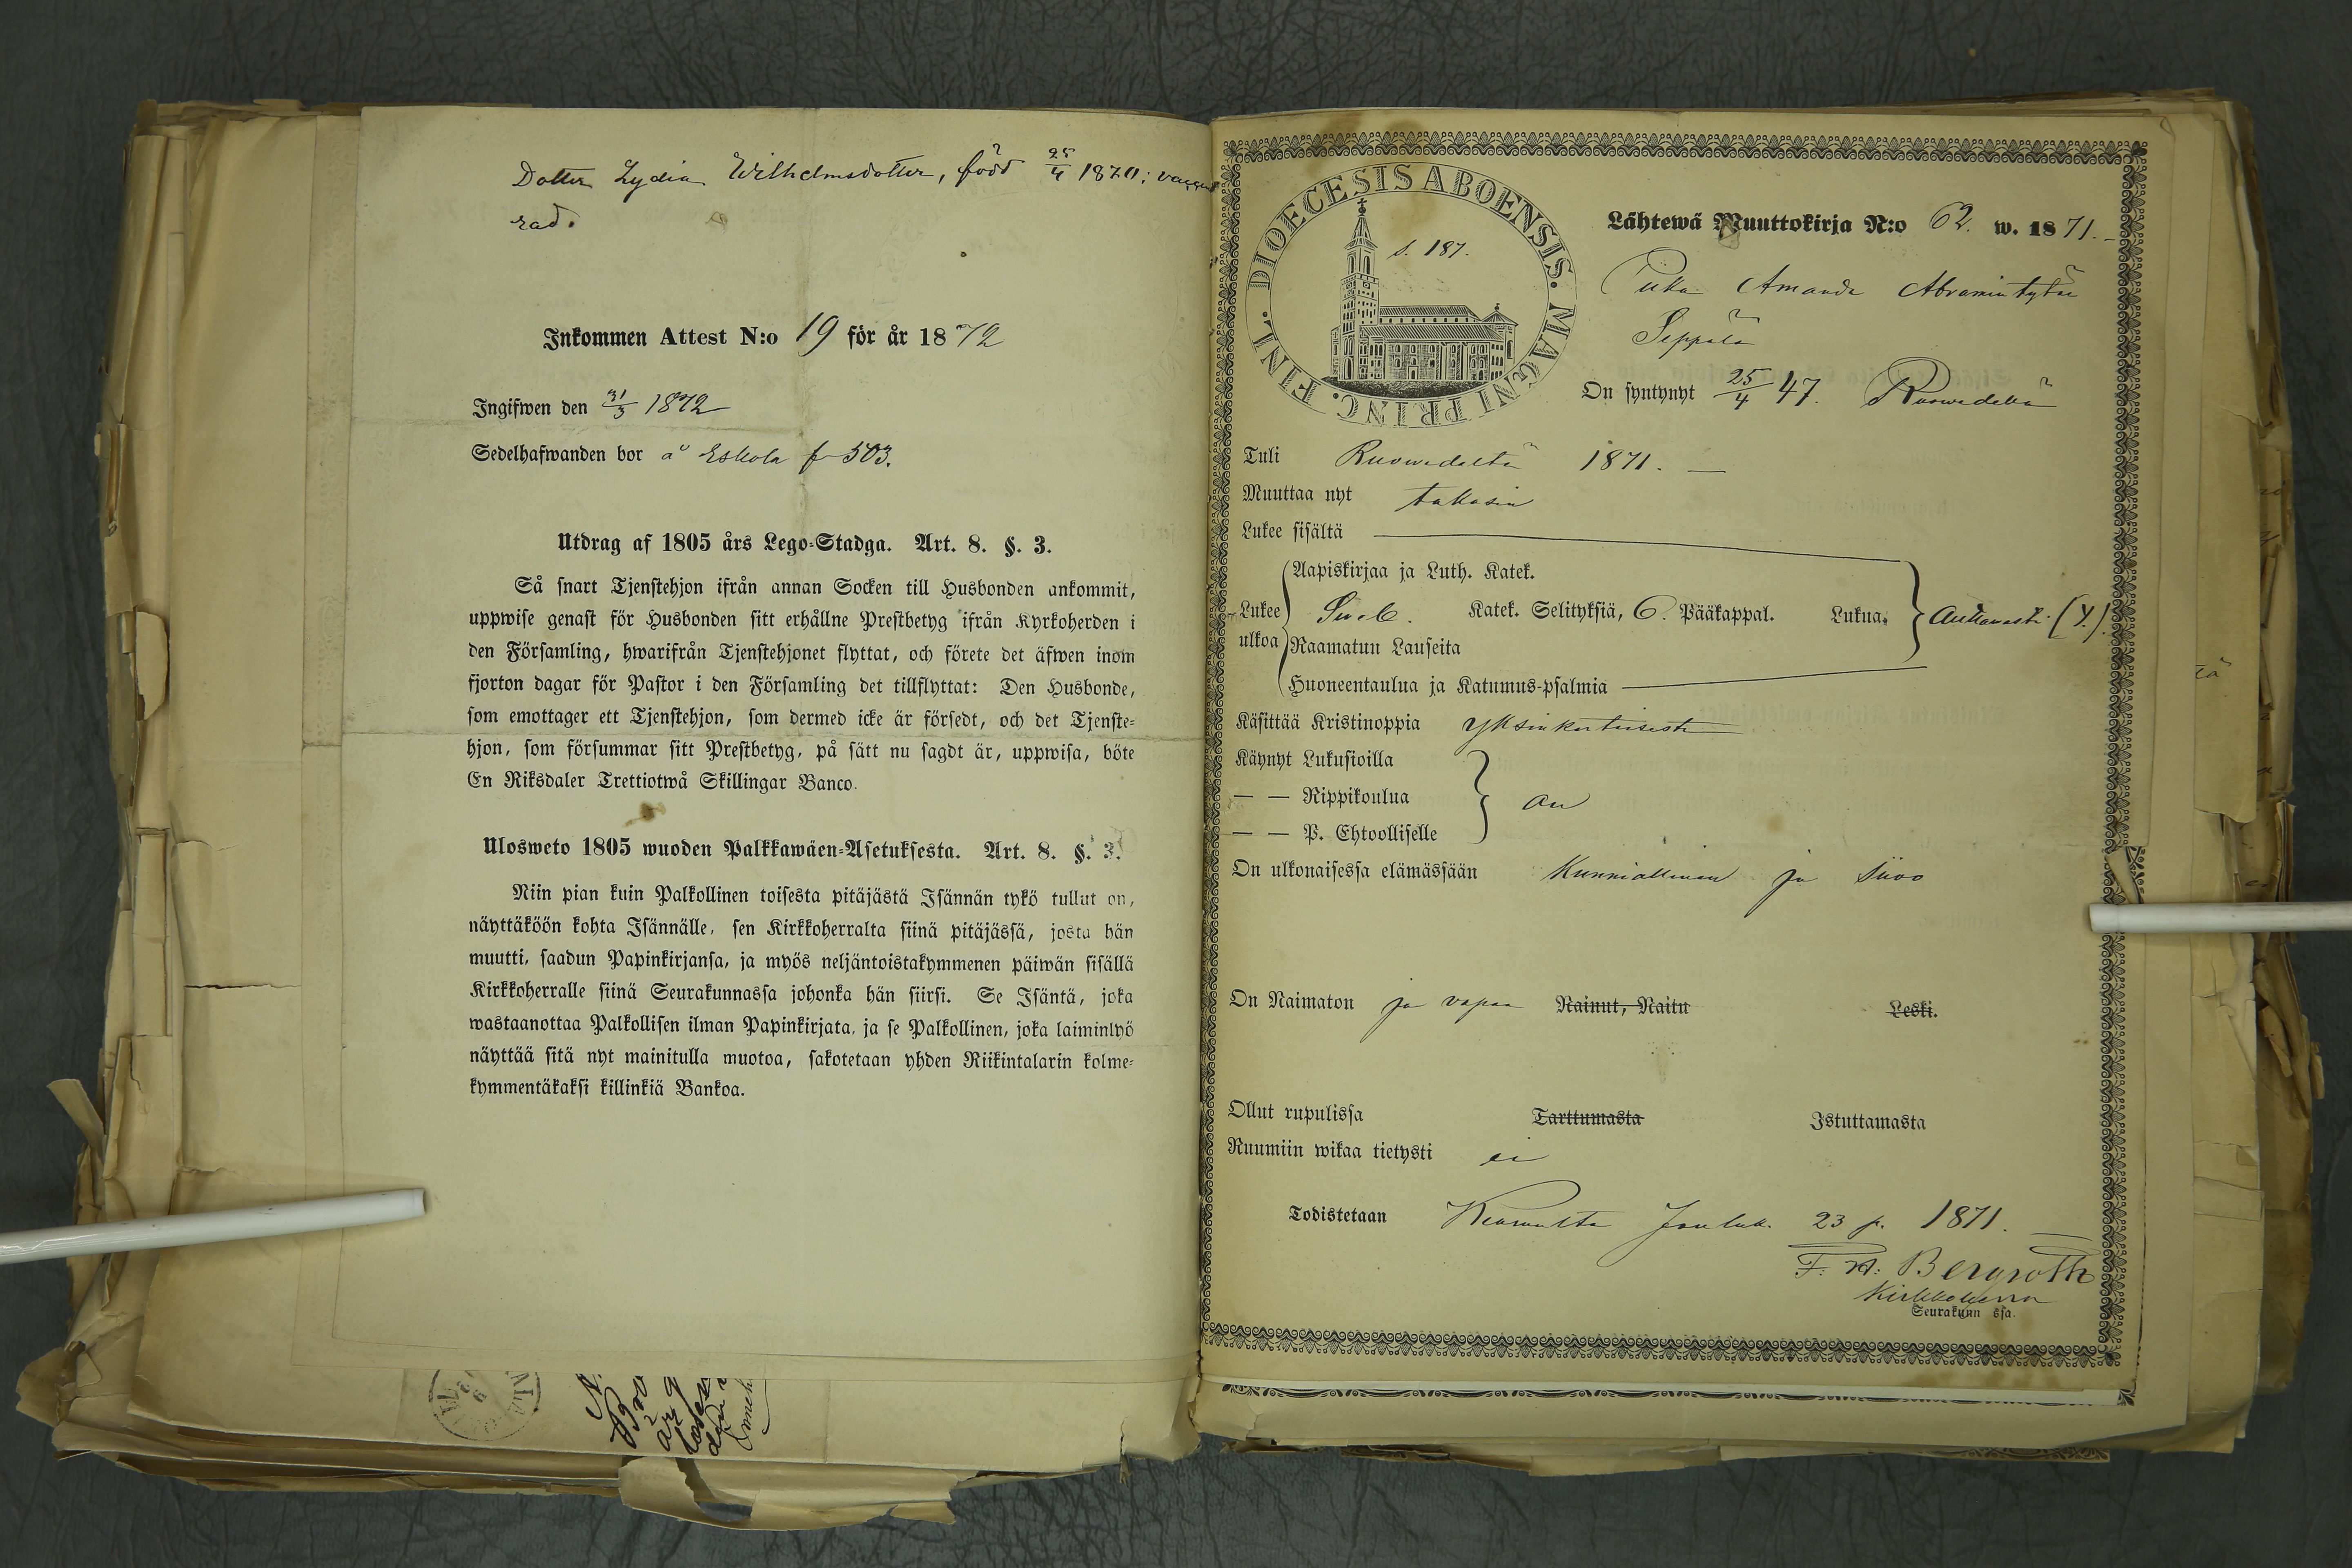 Dotter Lydia Wilhelmsdotter, född 25/4 1870; vaccine
rad.
Inkommen Attest N:o 19 för år 1872
Ingifwen den 31/3 1872
Sedelhafwanden bor å Eskola f 503.
Utdrag af 1805 års Lego-Stadga. Art. 8. §. 3.
Så snart Tjenstehjon ifrån annan Socken till Husbonden ankommit,
uppwise genast för Husbonden sitt erhållne Prestbetyg ifrån Kyrkoherden i
den Församling, hwarifrån Tjenstehjonet flyttat, och förete det äfwen inom
fjorton dagar för Pastor i den Församling det tillflyttat: Den Husbonde,
som emottager ett Tjenstehjon, som dermed icke är försedt, och det Tjenste-
hjon, som försummar sitt Prestbetyg, på sätt nu sagdt är, uppwisa, böte
En Riksdaler Trettiotwå Skillingar Banco.
Ulosweto 1805 wuoden Palkkawäen-Asetuksesta. Art. 8. §. 3.
Niin pian kuin Palkollinen toisesta pitäjästä Isännän tykö tullut on,
näyttäköön kohta Isännälle, sen Kirkkoherralta siinä pitäjässä, josta hän
muutti, saadun Papinkirjansa, ja myös neljäntoistakymmenen päiwän sisällä
Kirkkoherralle siinä Seurakunnassa johonka hän siirsi. Se Isäntä, joka
wastaanottaa Palkollisen ilman Papinkirjata, ja se Palkollinen, joka laiminlyö
näyttää sitä nyt mainitulla muotoa, sakotetaan yhden Riikintalarin kolme-
kymmentäkaksi killinkiä Bankoa.
DIOECESIS ABOENSIS. MAGNI PRINC. FINL.
s. 187.
Lähtewä Muuttokirja N:o 62. w. 1871.
Piika Amanda Abramintytär
Seppälä
On syntynyt 25/4 47. Ruowedellä
Tuli Ruowedeltä 1871.
Muuttaa nyt takasin
Lukee sisältä
Aapiskirjaa ja Luth. Katek.
Lukee ulkoa Katek. Selityksiä, 6. Pääkappal. Lukua.
Raamatun Lauseita
Huoneentaulua ja Katumus-psalmia
Käsittää Kristinoppia yksinkertaisesti
Käynyt Lukusioilla
— — Rippikoulua on
— — P. Ehtoolliselle
On ulkonaisessa elämässään Kunniallinen ja siivo
On Naimaton ja vapaa Nainut, Naitu Leski.
Ollut rupulissa Tarttumasta Istuttamasta
Ruumiin wikaa tietysti ei
Todistetaan Jouluk. 23 p. 1871.
F. W. Bergroth
Kirkkoherra
Seurakunn ssa.